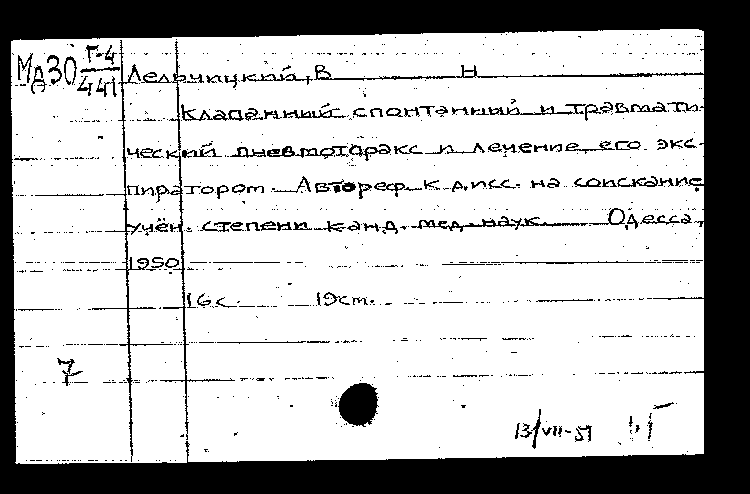 МД30 Г-4
441
Лельчицкий, В Н
Клапанный спонтанный и травмати-
ческий пневмоторакс и лечение его экс-
пиратором. Автореф. к дисс. на соискание
учён. степени канд. мед. наук. Одесса,
1950
16 с. 19 ст.
7
13/VII-51